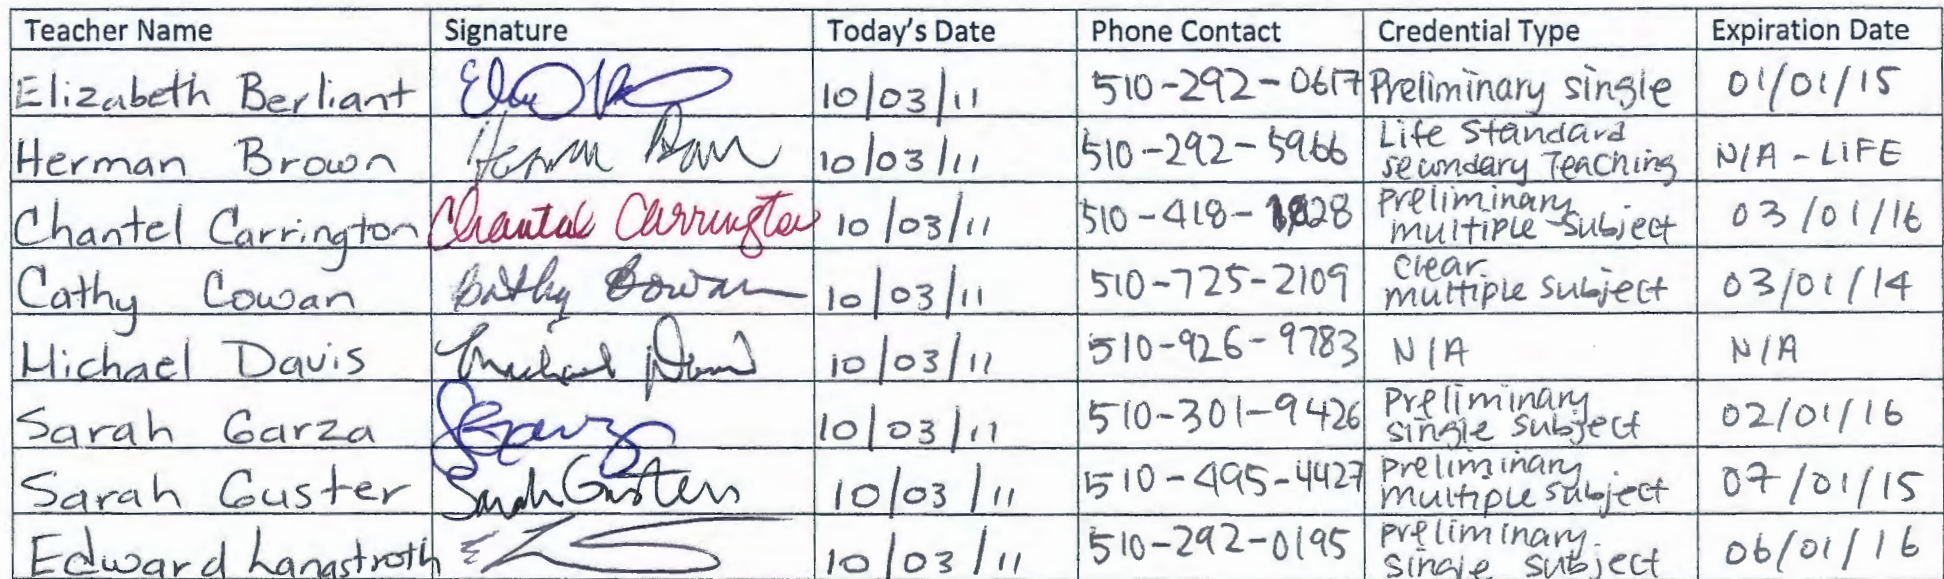 Teacher Name Signature Today's Date Phone Contact Credential Type Expiration Date
Elizabeth Berliant 10/03/11 510-292-0617 Preliminary single 01/01/15
Herman Brown Herman Brown 10/03/11 510-292-5966 Life Standard secondary Teaching N/A - LIFE
Chantel Carrington Chantal Carrington 10/03/11 510-418- Preliminary multiple subject 03/01/16
Cathy Cowan Cathy Cowan 10/03/11 510-725-2109 Clear multiple subject 03/01/14
Michael Davis Michael Davis 10/03/11 510-926-9783 N/A N/A
Sarah Garza SGarza 10/03/11 510-301-9426 Preliminary single subject 02/01/16
Sarah Guster Sarah Guster 10/03/11 510-495-4427 preliminary multiple subject 07/01/15
Edward Langstroth 10/03/11 510-292-0195 preliminary single subject 06/01/16